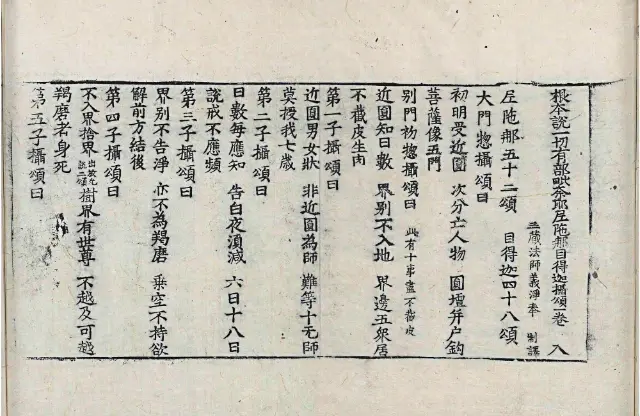 根本說一切有部毗奈耶尼陁那目得迦攝頌一卷 入
三藏法師義淨奉 制譯
尼陁那五十二頌 目得迦四十八頌
大門惣攝頌曰
初明受近圓 次分亡人物 圓壇并户鈎
菩薩像五門
別門初惣攝頌曰 此有十事盡不截皮
近圓知日數 界別不入地 界邊五衆居
不截皮生肉
第一子攝頌曰
近圓男女狀 非近圓為師 難等十无師
莫授我七歲
第二子攝頌曰
日數每應知 告白夜湏減 六日十八日
說戒不應頻
第三子攝頌曰
界別不告淨 亦不為羯磨 乘空不持欲
解前方結後
第四子攝頌曰
不入界捨界 樹界有世尊 不越及可越
羯磨者身死
第五子攝頌曰